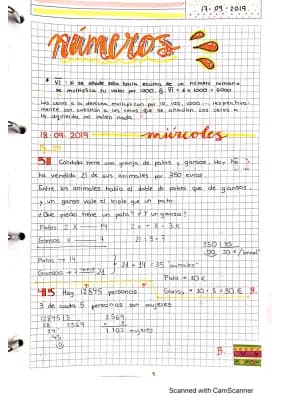 17-09-2019
números
* VI: Si se añade esta barita encima de un número romano
se multiplica su valor por 1000. Ej. VI = 6 x 1000 = 6000
Los ceros a la derecha multiplican por 10, 100, 1000 ... respectiva-
mente con cuantos a los ceros que se añadan. Los ceros a
la izquierda no valen nada.
18-09-2019 miércoles
51 Candida tiene una granja de patos y gansos. Hoy
ha vendido 21 de sus animales por 350 euros.
Entre los animales había el doble de patos que de gansos.
y un ganso vale el triple que un pato.
¿Que precio tiene un pato? ¿Y un ganso?
Patos 2x 14 2x + x = 3x
Gansos x 7 21 : 3 = 7
Patos → 14
21 + 14 = 35 "animales"
Gansos →
Pato = 10 €
Ganso = 10 · 3 = 30 € B.
45 Hay 12845 personas
3 de cada 5 personas son mujeres
12845 5 2569
28 2569
7707 mujeres
45
B.
Scanned with CamScanner